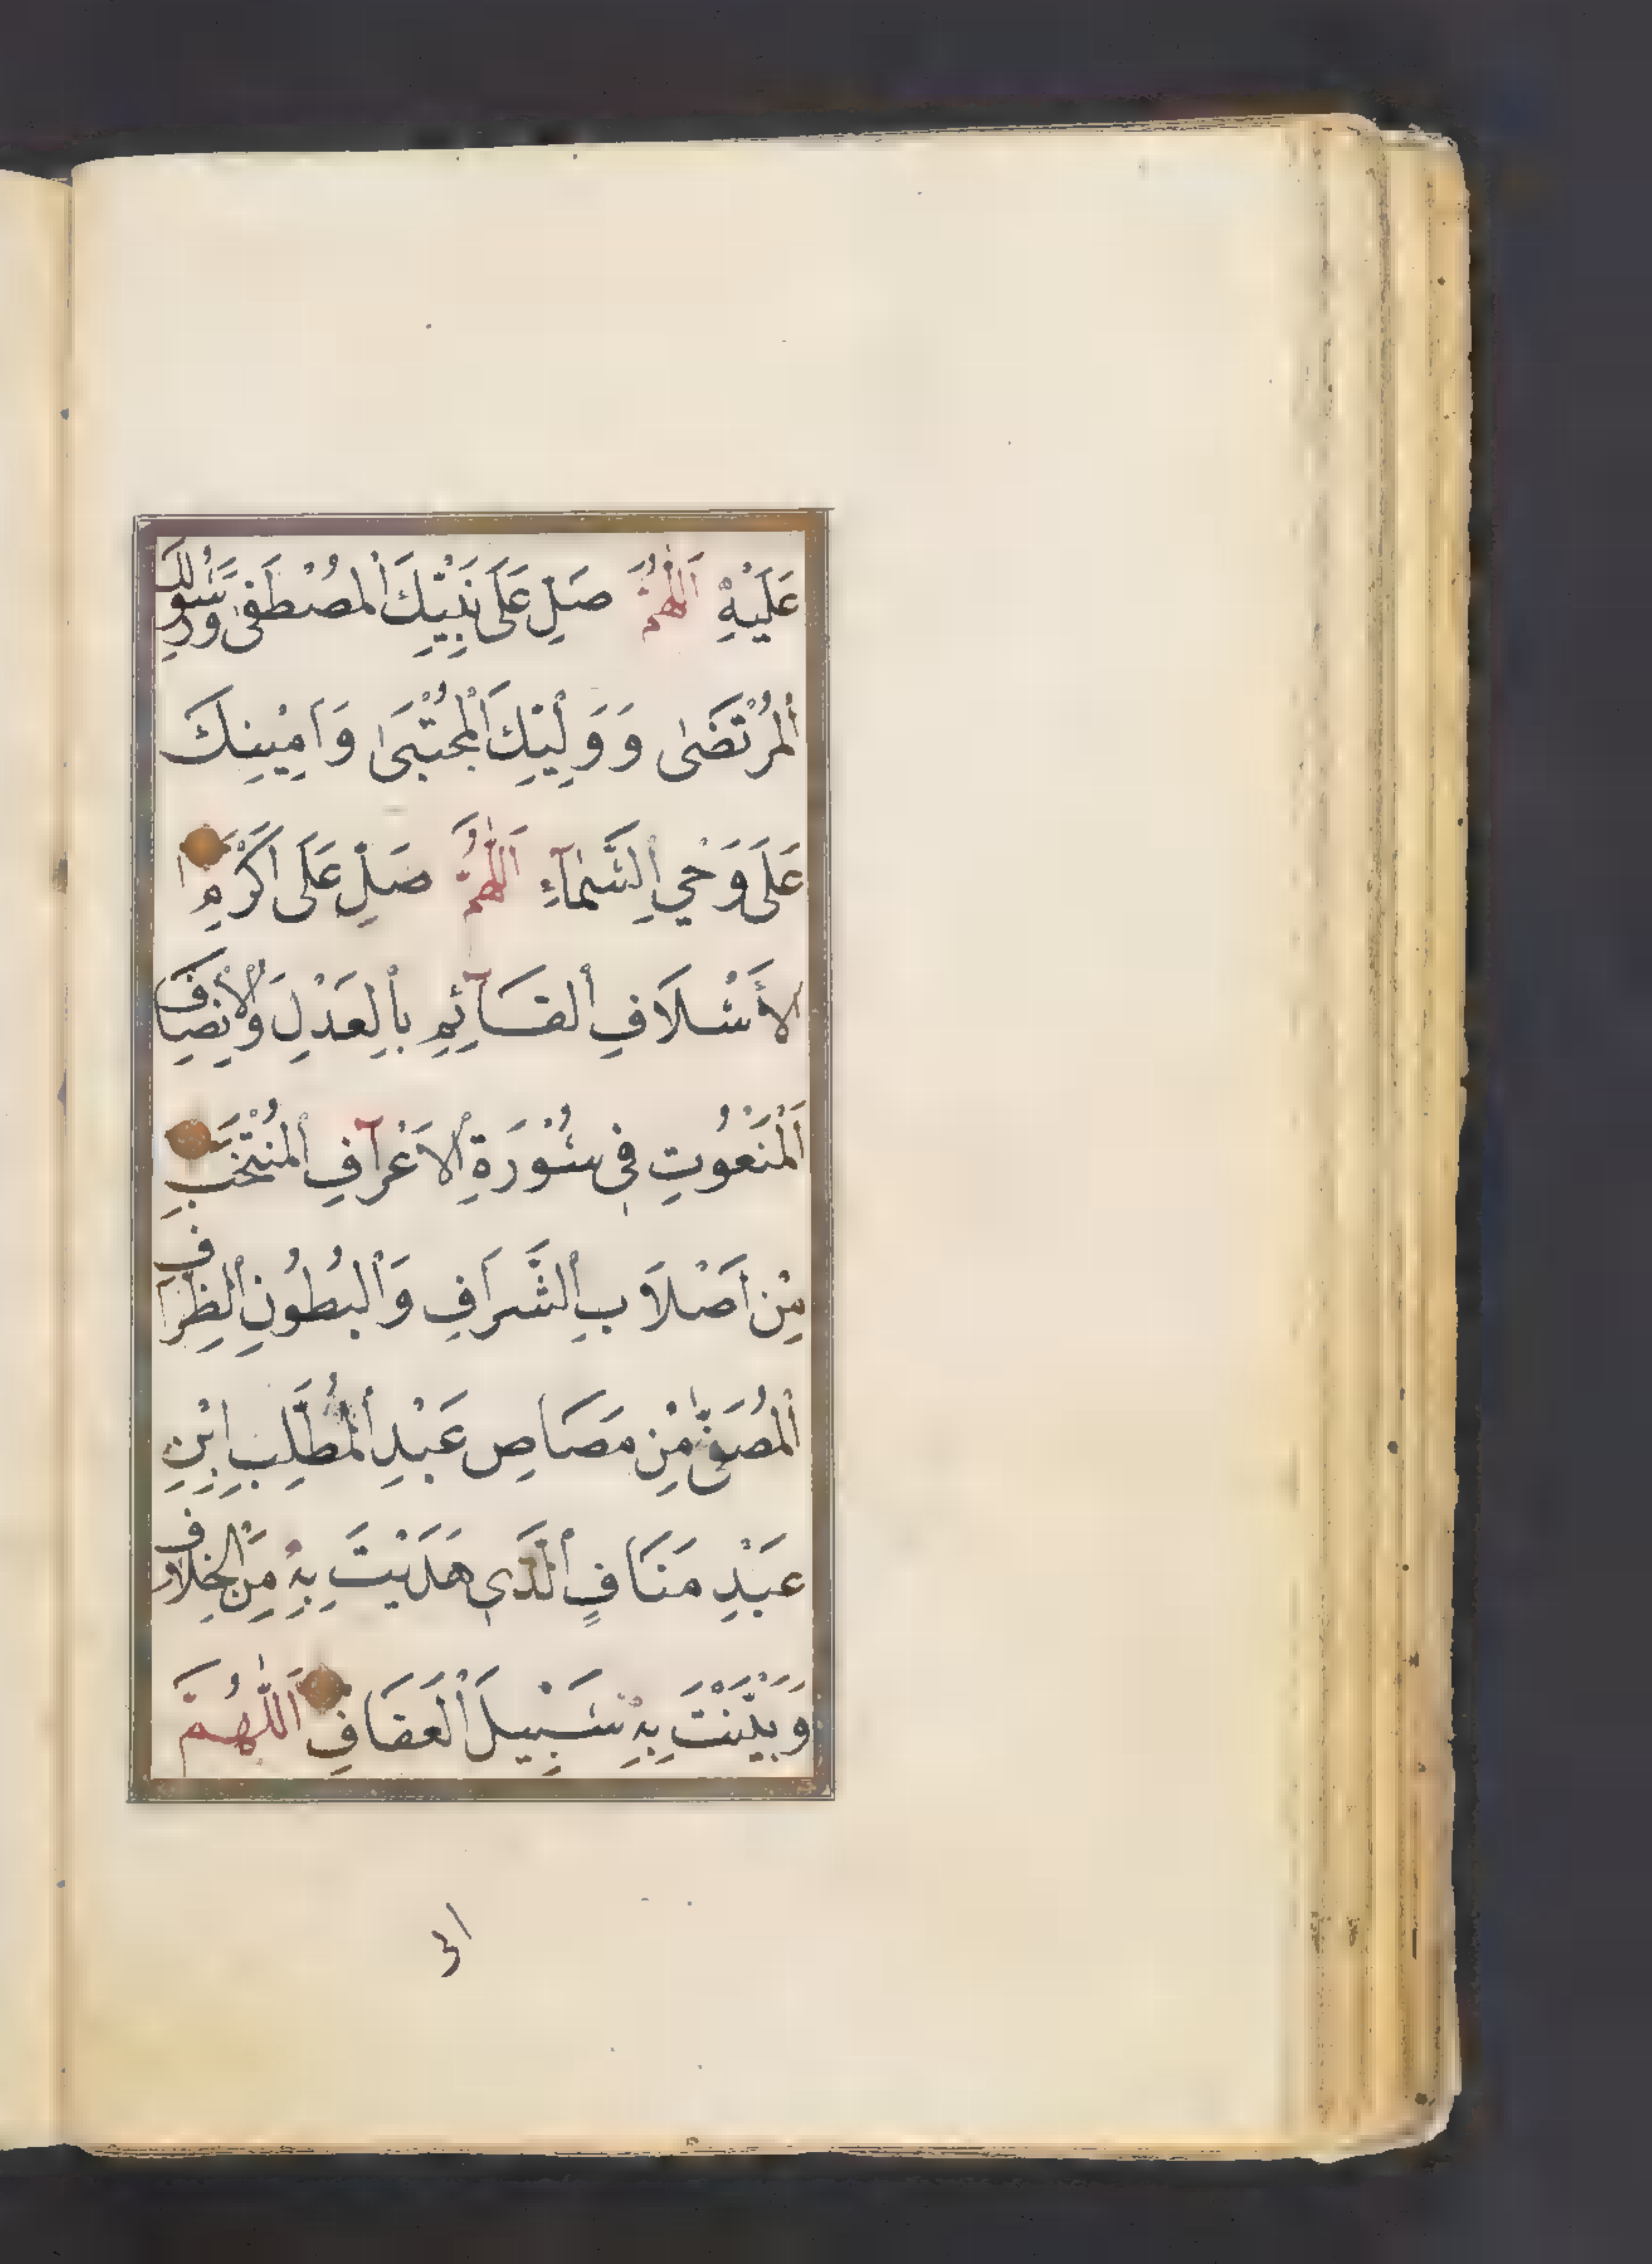 عَلَيْهِ اَللّٰهُمَّ صَلِّ عَلَى نَبِيِّكَ الْمُصْطَفٰى وَرَسُولِكَ
الْمُرْتَضٰى وَوَلِيِّكَ الْمُجْتَبٰى وَاَمِينِكَ
عَلَى وَحْيِ السَّمَآءِ اَللّٰهُمَّ صَلِّ عَلَى اَكْرَمِ ا
لْاَسْلَافِ الْقَآئِمِ بِالْعَدْلِ وَالْاِنْصَافِ
اَلْمَنْعُوتِ فِي سُوْرَةِ الْاَعْرَافِ الْمُنْتَخَبِ
مِنْ اَصْلَابِ الشَّرَافِ وَالْبُطُونِ الظِّرَافِ
الْمُصَفّٰى مِنْ مَصَاصِ عَبْدِ الْمُطَّلِبِ ابْنِ
عَبْدِ مَنَافٍ الَّذِي هَدَيْتَ بِهِ مِنَ الْخِلَافِ
وَبَيَّنْتَ بِهِ سَبِيْلَ الْعَفَافِ اَللّٰهُمَّ